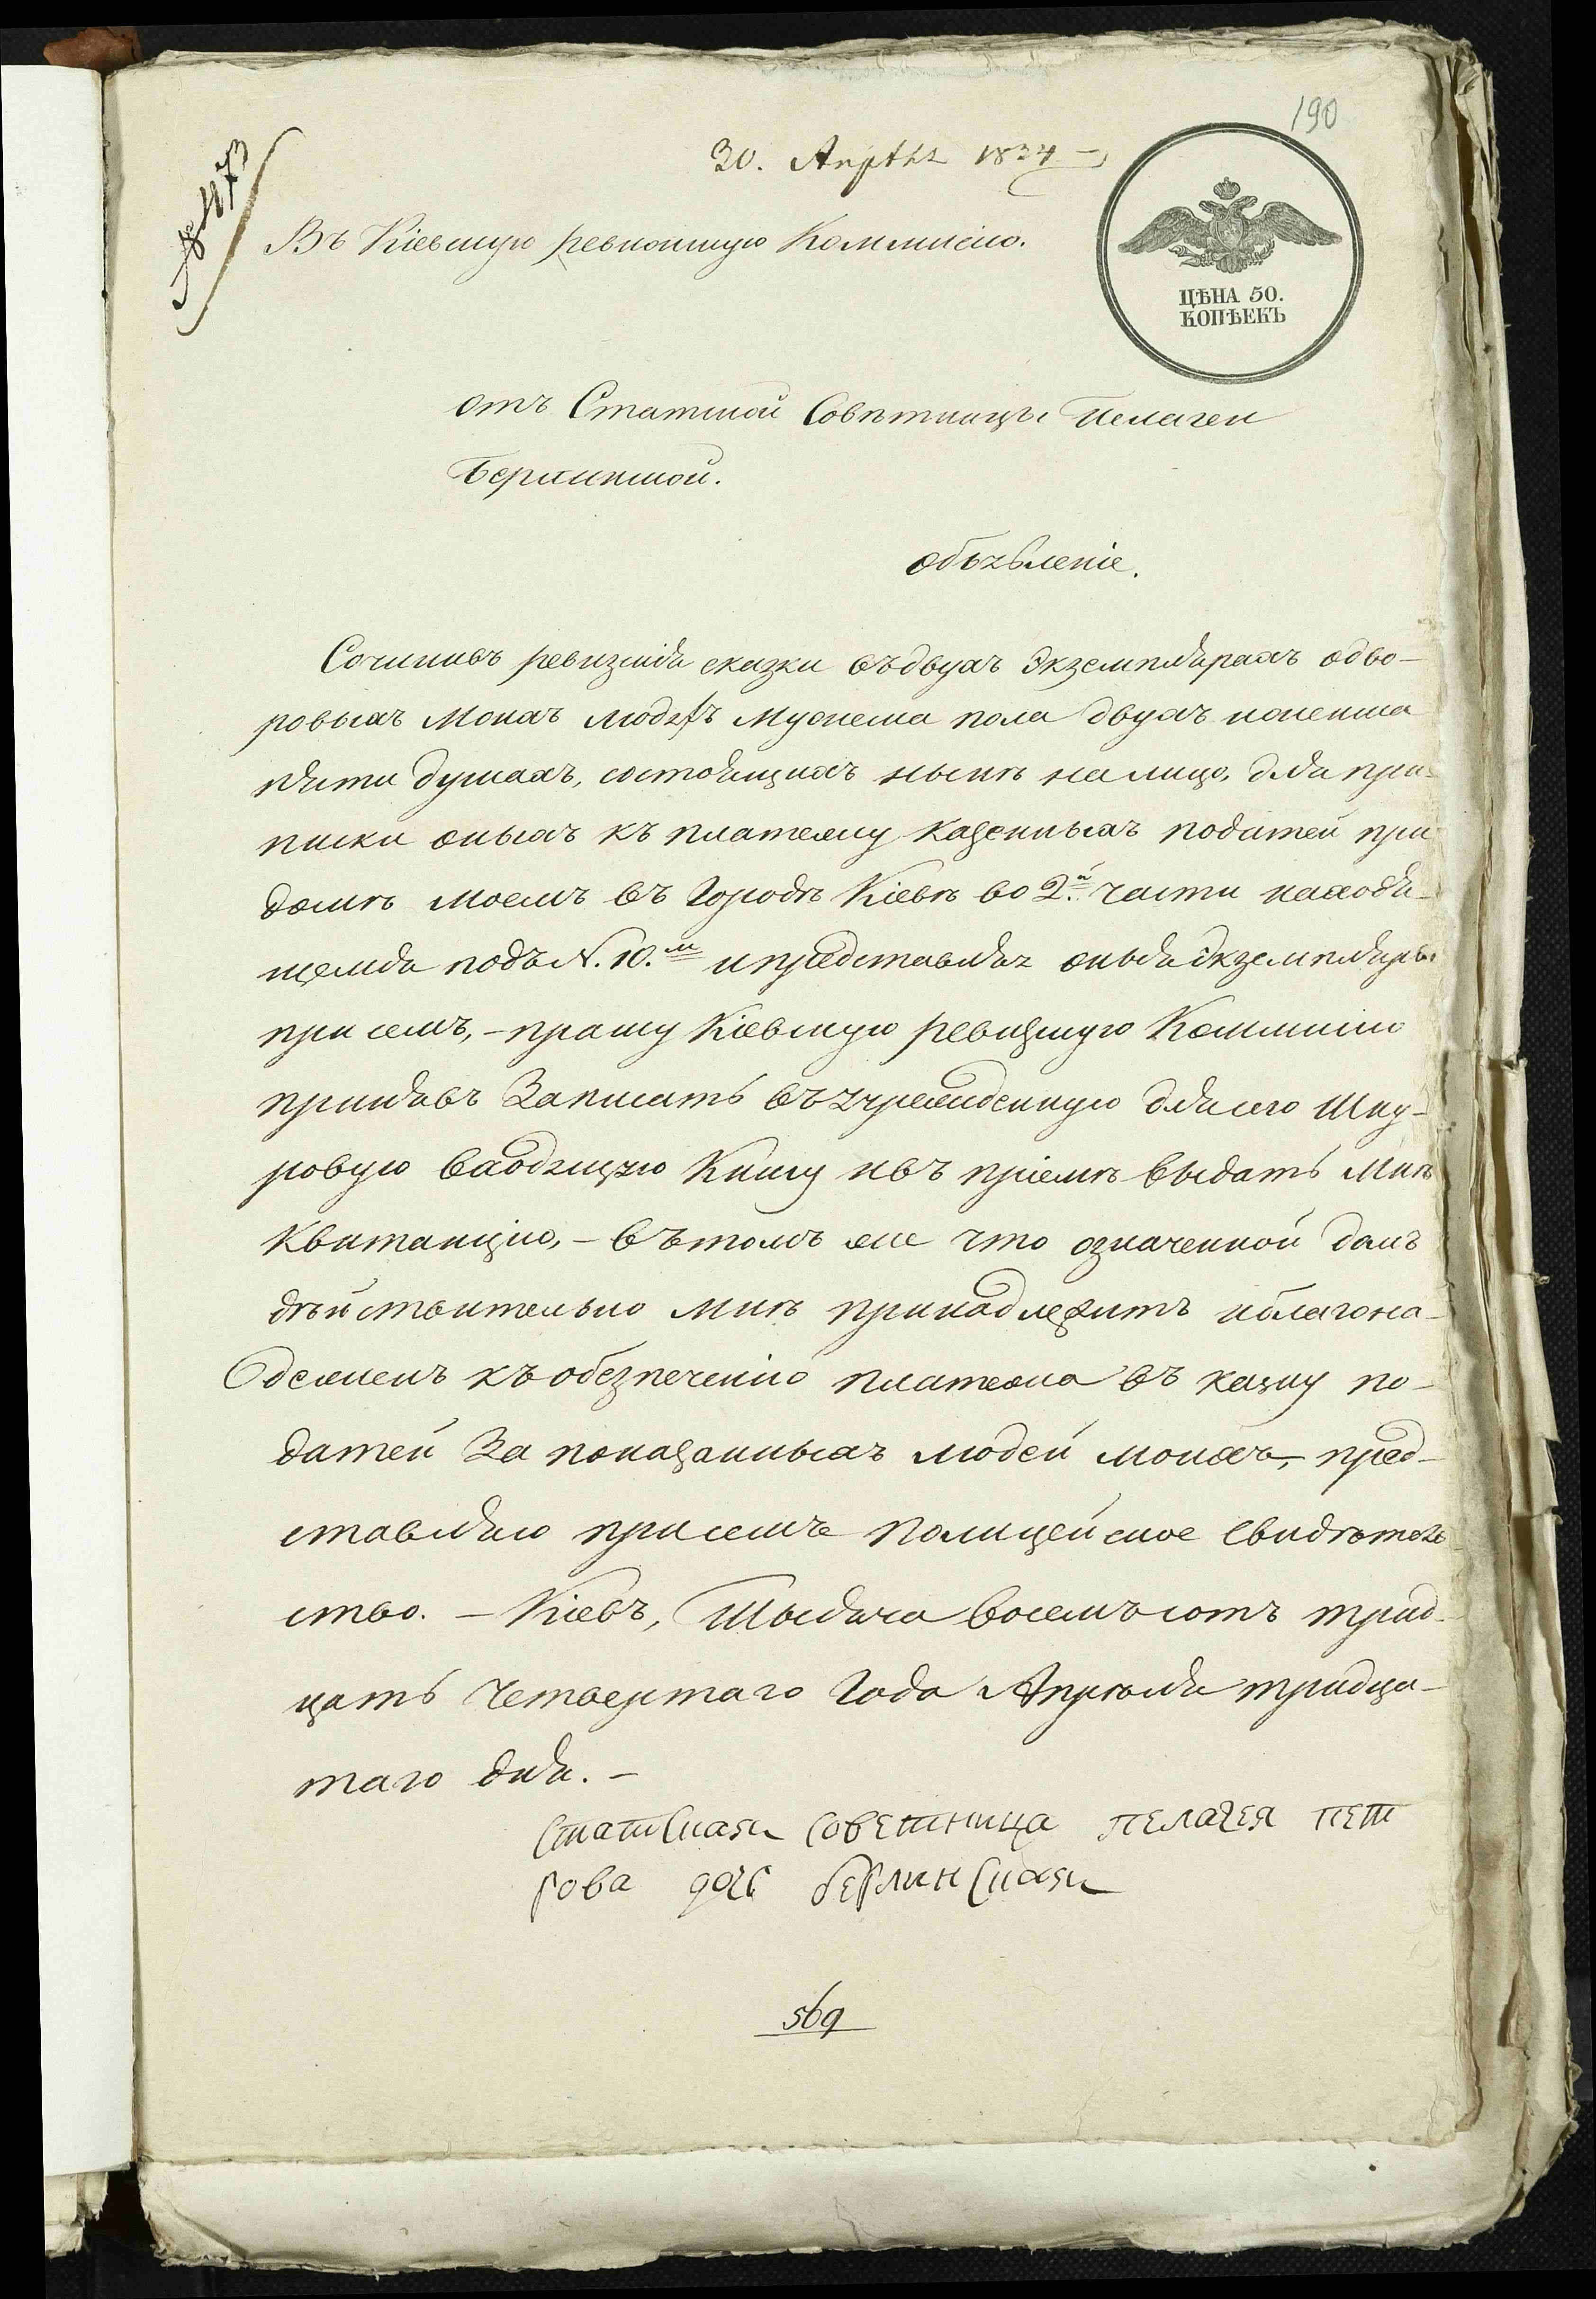 190
30. Апрѣля 1834
№ 473
Въ Кіевскую ревизскую Коммисію.
ЦѢНА 50.
КОПѢЕКЪ
отъ Статской Совѣтницы Пелагеи
Берлинской.
объявленіе.
Сочинивъ ревизскія сказки въ двухъ Экземплярахъ о дво-
ровыхъ Моихъ людяхъ Мужеска пола двухъ и женска
пяти душахъ, состоящихъ нынѣ на лицо, для при-
писки оныхъ къ платежу казенныхъ податей при
домѣ моемъ въ Городѣ Кіевѣ во 2й части находя-
щемся подъ N. 10.м и представляя оныя Экземпляры
при семъ, - прошу Кіевскую ревизскую Коммисію
принявъ Записать въ учрежденную для сего Шну-
ровую входящую Книгу и въ пріемѣ выдать Мнѣ
Квитанцію, - въ томъ же что означенной домъ
дѣйствительно мнѣ принадлежитъ и благона-
деженъ къ обезпеченію платежа въ казну по-
датей За показанныхъ людей моихъ, - пред-
ставляю при семъ Полицейское Свидѣтель-
ство. - Кіевъ, Тысяча восемъ сотъ трид-
цать Четвертаго Года Апрѣля тридца-
таго дня. -
Статская советница пелагея пет
рова дочь берлинская
569